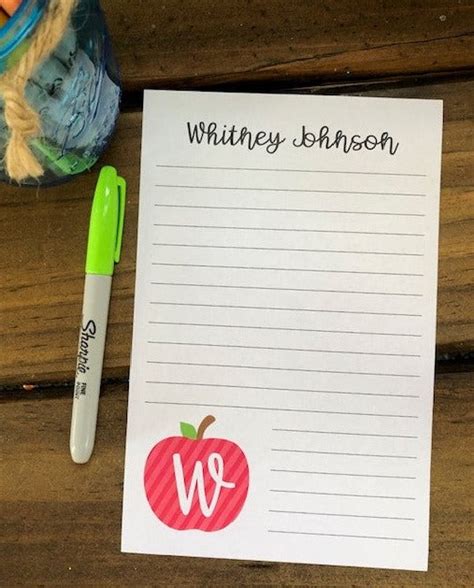 Whitney Johnson
Sharpie
FINE
POINT
W